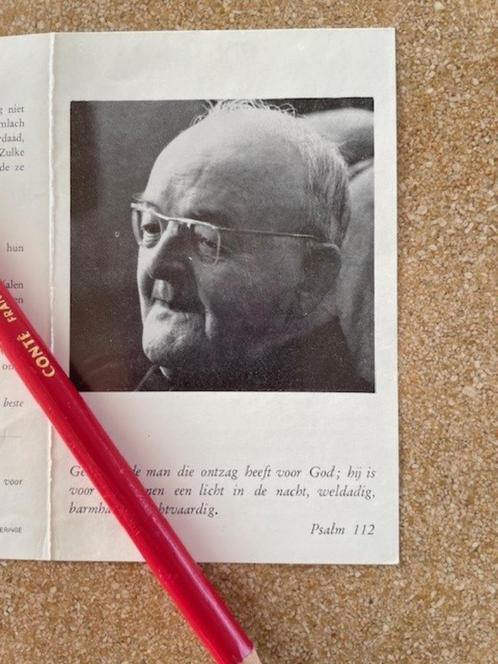 g niet
mlach
rdaad,
Zulke
de ze
hun
alen
en
beste
voor
ERINGE
CONTÉ FRAN
de man die ontzag heeft voor God; hij is
voor een licht in de nacht, weldadig,
barmha htvaardig.
Psalm 112